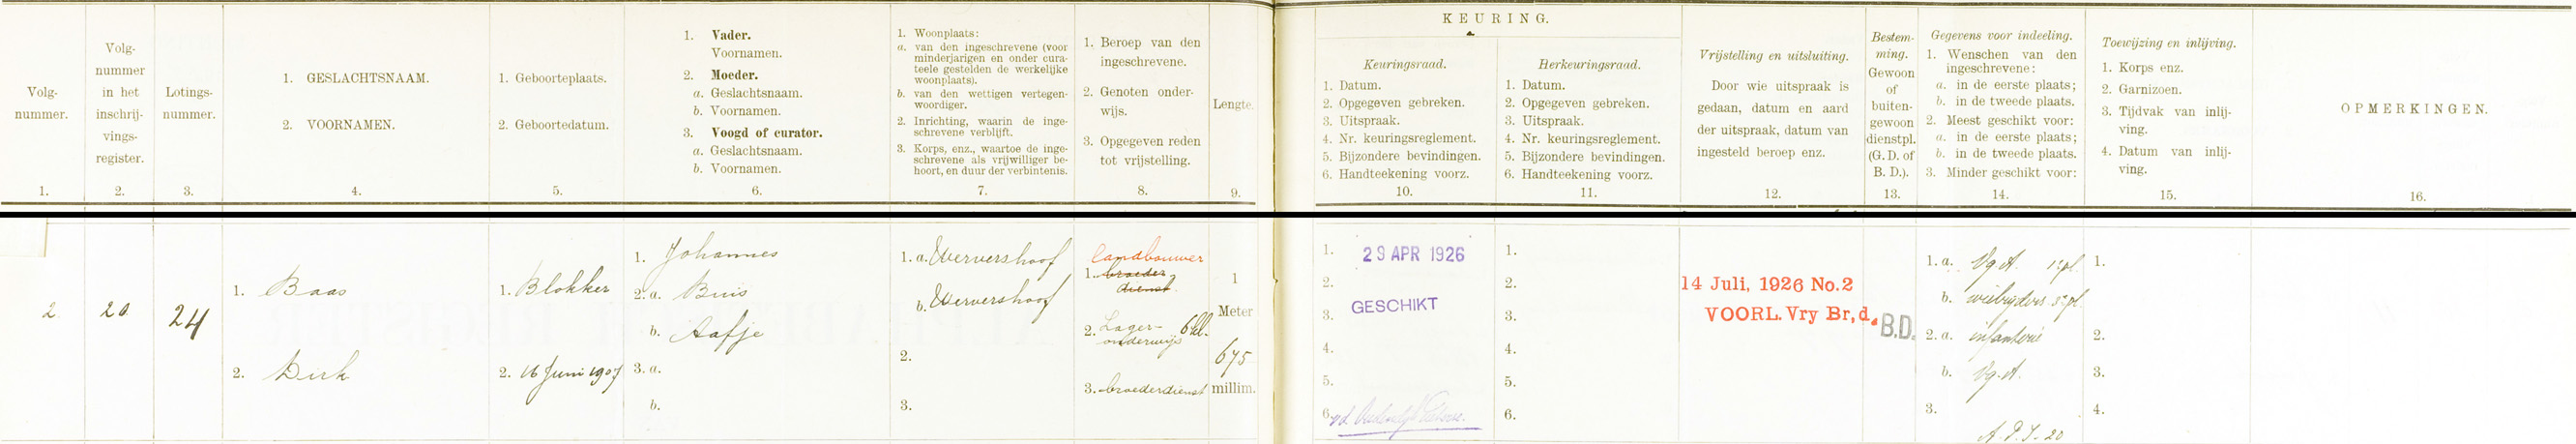 Volg-
nummer.
1.
Volg-
nummer
in het
inschrij-
vings-
register.
2.
Lotings-
nummer.
3.
1. GESLACHTSNAAM.
2. VOORNAMEN.
4.
1. Geboorteplaats.
2. Geboortedatum.
5.
1. Vader.
Voornamen.
2. Moeder.
a. Geslachtsnaam.
b. Voornamen.
3. Voogd of curator.
a. Geslachtsnaam.
b. Voornamen.
6.
1. Woonplaats:
a. van den ingeschrevene (voor
minderjarigen en onder cura-
teele gestelden de werkelijke
woonplaats).
b. van den wettigen vertegen-
woordiger.
2. Inrichting, waarin de inge-
schrevene verblijft.
3. Korps, enz., waartoe de inge-
schrevene als vrijwilliger be-
hoort, en duur der verbintenis.
7.
1. Beroep van den
ingeschrevene.
2. Genoten onder-
wijs.
3. Opgegeven reden
tot vrijstelling.
8.
Lengte.
9.
KEURING.
Keuringsraad.
1. Datum.
2. Opgegeven gebreken.
3. Uitspraak.
4. Nr. keuringsreglement.
5. Bijzondere bevindingen.
6. Handteekening voorz.
10.
Herkeuringsraad.
1. Datum.
2. Opgegeven gebreken.
3. Uitspraak.
4. Nr. keuringsreglement.
5. Bijzondere bevindingen.
6. Handteekening voorz.
11.
Vrijstelling en uitsluiting.
Door wie uitspraak is
gedaan, datum en aard
der uitspraak, datum van
ingesteld beroep enz.
12.
Bestem-
ming.
Gewoon
of
buiten-
gewoon
dienstpl.
(G.D. of
B. D.).
13.
Gegevens voor indeeling.
1. Wenschen van den
ingeschrevene:
a. in de eerste plaats;
b. in de tweede plaats.
2. Meest geschikt voor:
a. in de eerste plaats;
b. in de tweede plaats.
3. Minder geschikt voor:
14.
Toewijzing en inlijving.
1. Korps enz.
2. Garnizoen.
3. Tijdvak van inlij-
ving.
4. Datum van inlij-
ving.
15.
OPMERKINGEN.
16.
2.
20
24
1. Baas
2. Dirk
1. Blokker
2. 16 Juni 1907
1. Johannes
2. a. Buis
b. Aafje
3. a.
b.
1. a. Wervershoof
b. Wervershoof
2.
3.
landbouwer
1. broeder
dienst
2. Lager- 6 kl.
onderwijs
3. broederdienst
1
Meter
675
millim.
1. 29 APR 1926
2.
3. GESCHIKT
4.
5.
6.
1.
2.
3.
4.
5.
6.
14 Juli, 1926 No. 2
VOORL. Vry Br,d.
B.D.
1. a. Vg.A. 1e pl.
b. wielrijders 3e pl.
2. a. infanterie
b. Vg.A.
3.
A.P.I-20
1.
2.
3.
4.